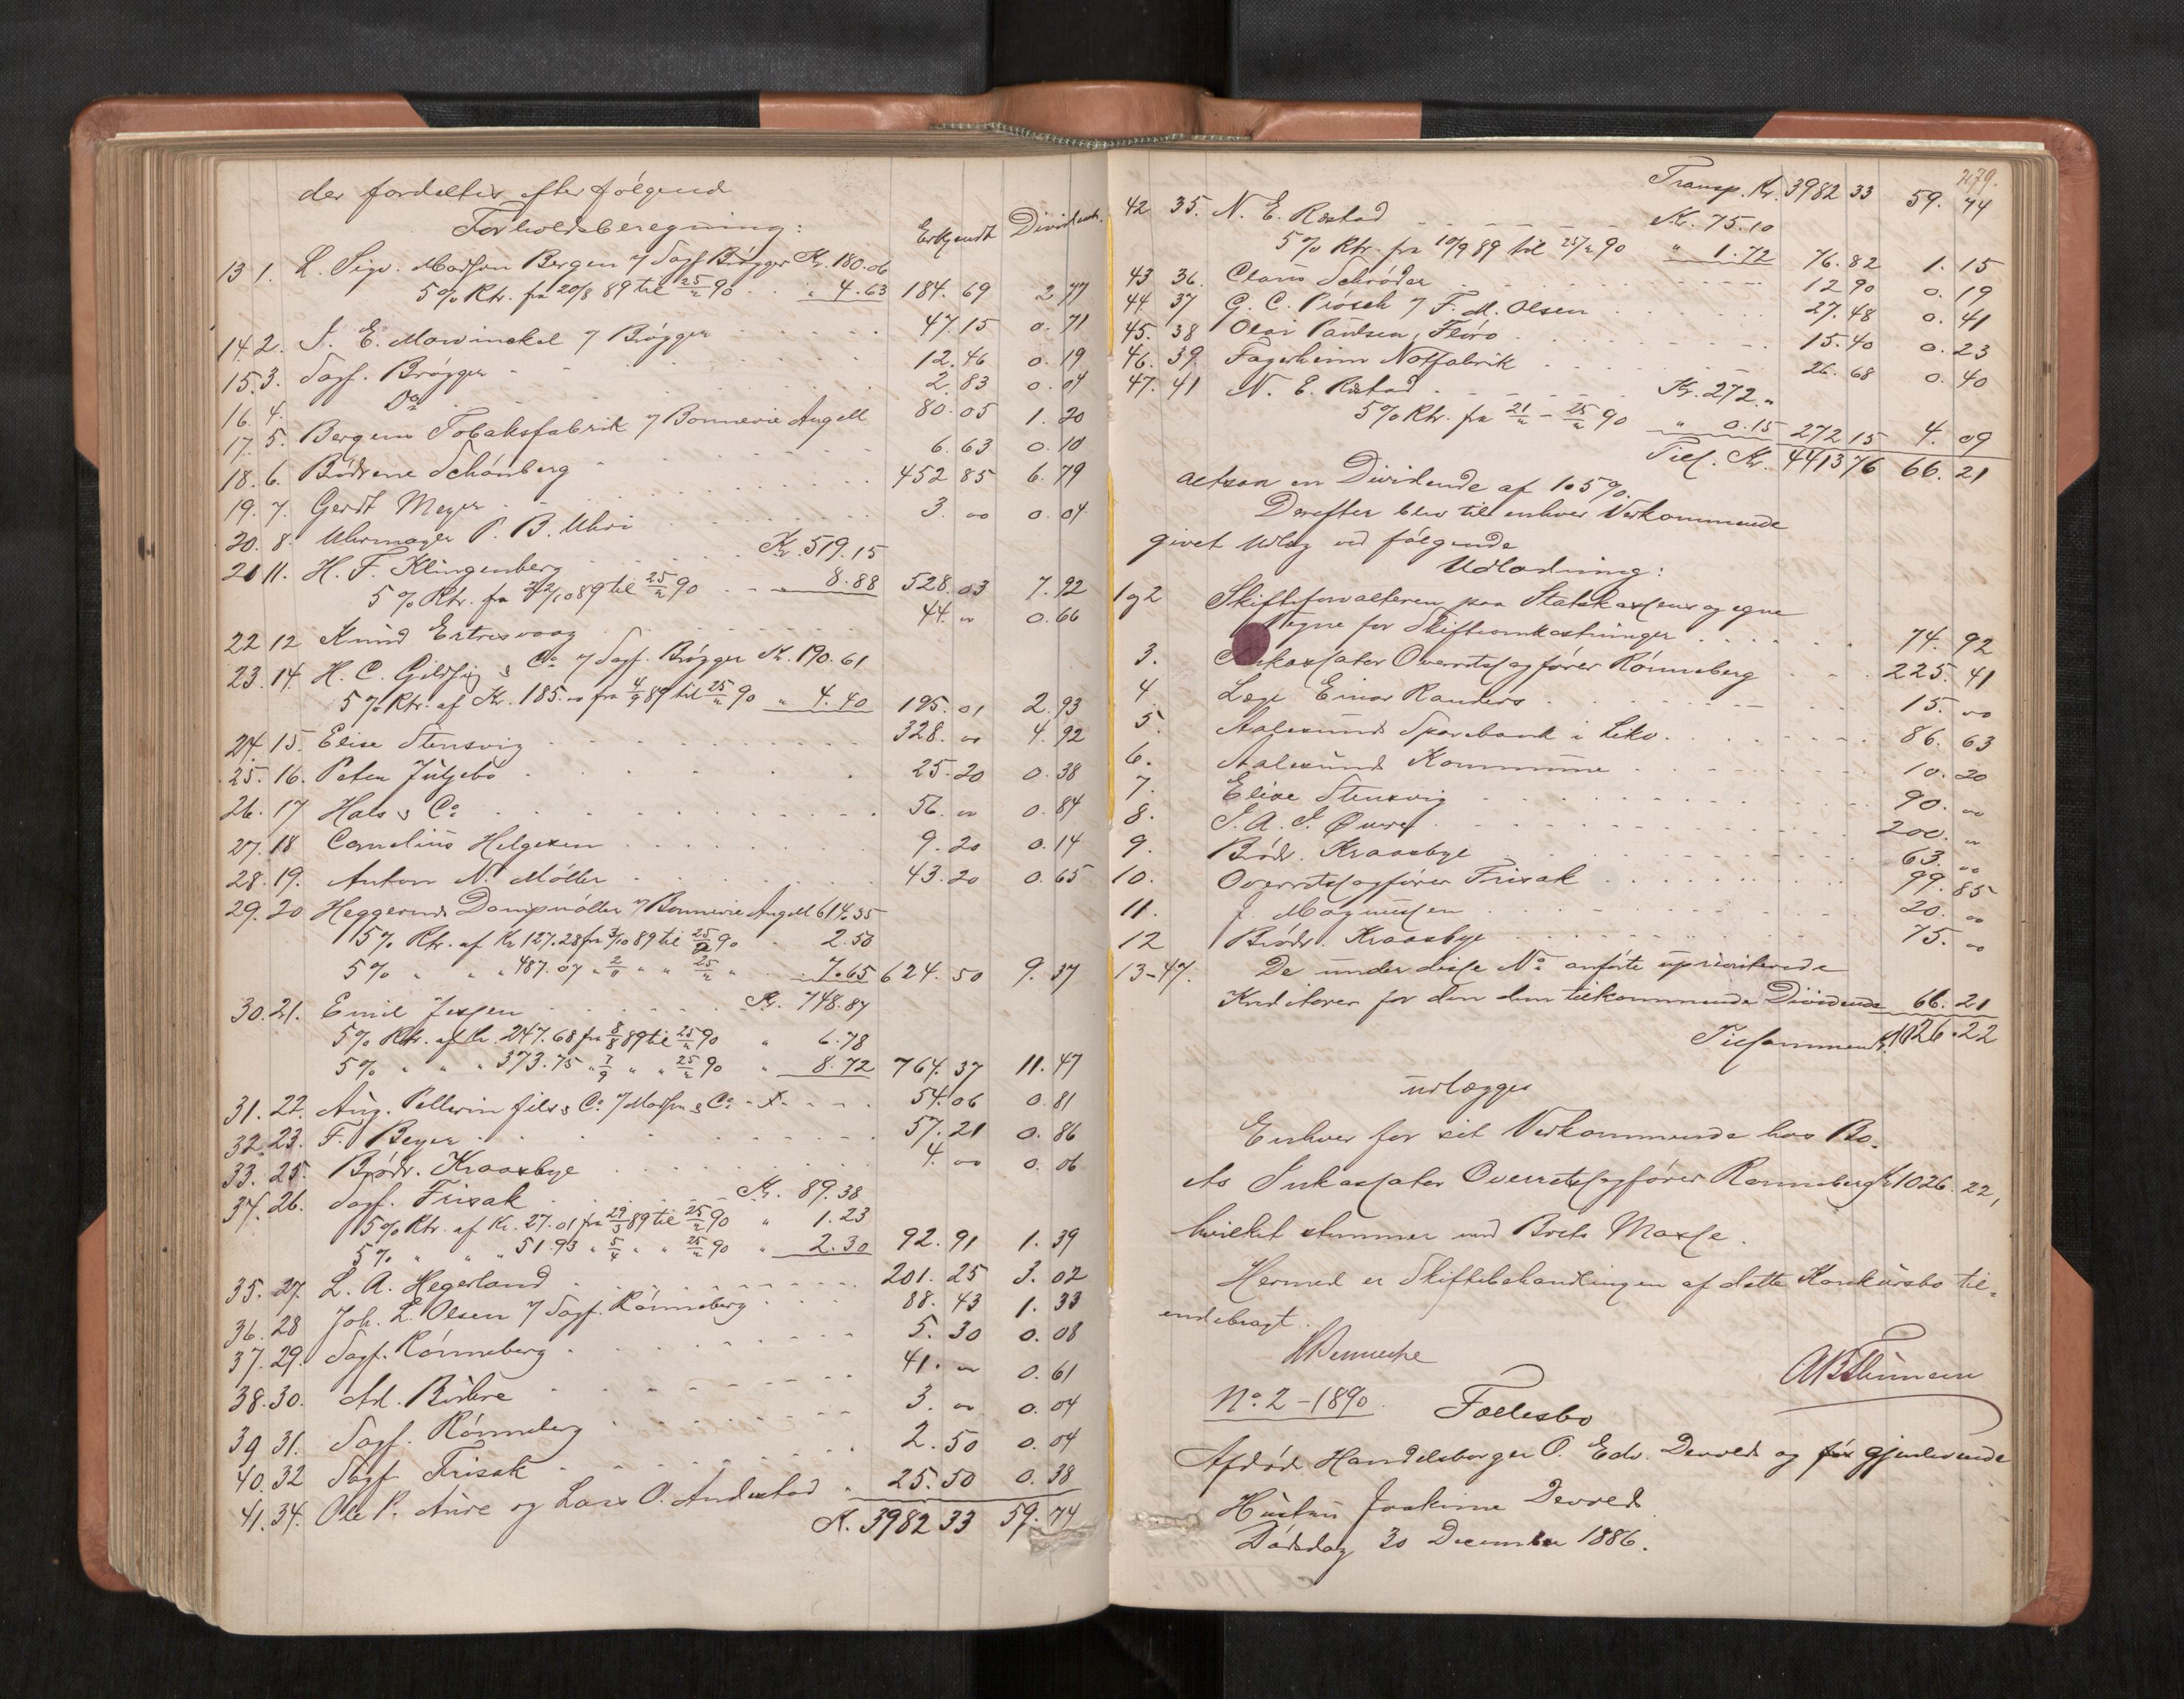 der fordeltes efter følgende
Forholdsberegning:
Erkjendt Dividende.
13 1. L. Sigv. Madsen Bergen v/ Sagf Brøgger Kr. 180.06
5% Rtr. fra 20/8 89 til 25/2 90 " 4.63 184.69 2.77
14. 2. J. E. Mowinckel v/ Brøgger 47.15 0.71
15. 3. Sagf. Brøgger 12.46 0.19
16. 4. Do 2.83 0.04
17. 5. Bergens Tobaksfabrik v/ Bonnevie Angell 80.05 1.20
18. 6. Brødrene Schönberg 6.63 0.10
19. 7. Gerdt Meyer 452 85 6.79
20. 8. Uhrmager P. B. Uhri 3. 00 0.04
21 11. H. F. Klingenberg Kr. 519.15
5% Rtr. fra 22/10 89 til 25/2 90 " 8.88 528.03 7.92
22 12 Knud Ertresvaag 44. " 0.66
23. 14. H. C. Gildsig & Co v/ Sagf. Brøgger Kr. 190.61
5% Rtr. af Kr. 185.00 fra 4/9 89 til 25/2 90 " 4.40 195.01 2.93
24. 15. Elise Stensvig 328. 00 4.92
25. 16. Peter Julsebø 25.20 0.38
26. 17 Hals & Co 56. 00 0.84
27. 18 Cornelius Helgesen 9.20 0.14
28. 19. Anton N. Möller 43.20 0.65
29. 20 Heggernes Dampmøller v/ Bonnevie Angell 614.35
5% Rtr. af Kr 127.28 fra 3/10 89 til 25/2 90 2.50
5% " " " 487.07 " " " 25/2 " 7.65 624.50 9.37
30. 21. Emil Jessen Kr. 748.87
5% Rtr. af Kr. 247.68 fra 8/8 89 til 25/2 90 " 6.78
5% " " " 373.75 " 7/9 " " 25/2 90 " 8.72 764.37 11.47
31. 22. Aug. Pellerin fils & Co v/ Madsen & Co 54.06 0.81
32. 23. F. Beyer 57.21 0.86
33. 25. Brødr. Kraasbye 4. 00 0.06
34. 26. Sagf. Frisak Kr. 89.38
5% Rtr. af Kr. 27.01 fra 29/3 89 til 25/2 90 " 1.23
5% " " " 51.93 " 5/4 " " 25/2 90 " 2.30 92.91 1.39
35. 27. L. A. Hegerland 201.25 3.02
36. 28 Joh. L. Olsen v/ Sagf. Rönneberg 88.43 1.33
37. 29. Sagf. Rönneberg 5.30 0.08
38. 30. Ad. Buhre 41. 00 0.61
39 31. Sagf. Rönneberg 3. 00 0.04
40. 32 Sagf Frisak 2.50 0.04
41. 34. Ole P. Aure og Lars O. Andestad 25.50 0.38
Kr. 3982 33 59.74
279.
Transp. Kr. 3982 33 59.74
42 35. N. E. Røstad Kr. 75.10
5% Rtr. fra 10/9 89 til 25/2 90 " 1.72 76.82 1.15
43 36. Claus Schrøder 12 90 0.19
44. 37 G. C. Piøsch v/ F. M. Olsen 27.48 0.41
45. 38 Olai Paulsen, Florø 15.40 0.23
46. 39. Fagerheim Notfabrik 26.68 0.40
47. 41 N. E. Røstad Kr. 272. "
5% Rtr. fra 21/2 - 25/2 90 " 0.15 272 15 4.09
Tils. Kr. 4413 76 66.21
altsaa en Dividende af 1.5%.
Derefter blev til enhver Vedkommende
givet Udlæg ved følgende
Udlodning:
1 og 2 Skifteforvalteren paa Statskassens og egne
Vegne for Skifteomkostninger 74.92
3. Inkassator Overretssagfører Rönneberg 225.41
4. Læge Einar Randers 15. 00
5. Aalesunds Sparebank i Likv. 86.63
6. Aalesunds Kommune 10.20
7. Elise Stensvig 90. 00
8. J. A. J. Øwre 200. "
9. Brødr. Kraasbye 63. 00
10. Overretssagfører Frisak 99.85
11. J. Magnussen 20. 00
12 Brødr. Kraasbye 75. 00
13-47. De under disse No anførte upriviterede
Kreditorer for den dem tilkommende Dividende 66.21
Tilsammen Kr. 1026.22
udlægges
Enhver for sit Vedkommende hos Bo-
ets Inkassator Overretssagfører Rønneberg Kr 1026.22,
hvilket stemmer med Boets Masse.
Hermed er Skiftebehandlingen af dette Konkursbo til-
endebragt.
No 2 - 1890. Fællesbo
Afdød Handelsborger O. Edv. Devold og gjenlevende
Hustru Joakime Devold
Dødsdag 30 December 1886.